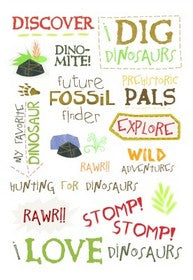 DISCOVER
i DIG
DINOSAURS
DINO-
MITE!
future
FOSSIL
finder
PREHISTORIC
PALS
MY FAVORITE
DINOSAUR
EXPLORE
RAWR!!
WILD
ADVENTURES
HUNTING FOR DINOSAURS
RAWR!!
STOMP!
STOMP!
i LOVE DINOSAURS